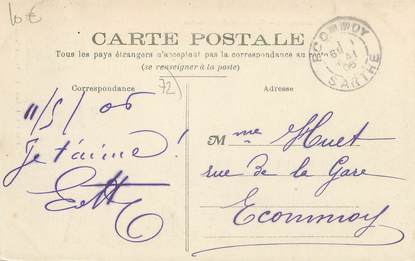 10 €
CARTE POSTALE
Tous les pays étrangers n'acceptent pas la correspondance au
(se renseigner à la poste)
Correspondance
72
Adresse
ECOMMOY
SARTHE
11/5/06
Je t'aime !
Mme Huet
rue de la Gare
Ecommoy